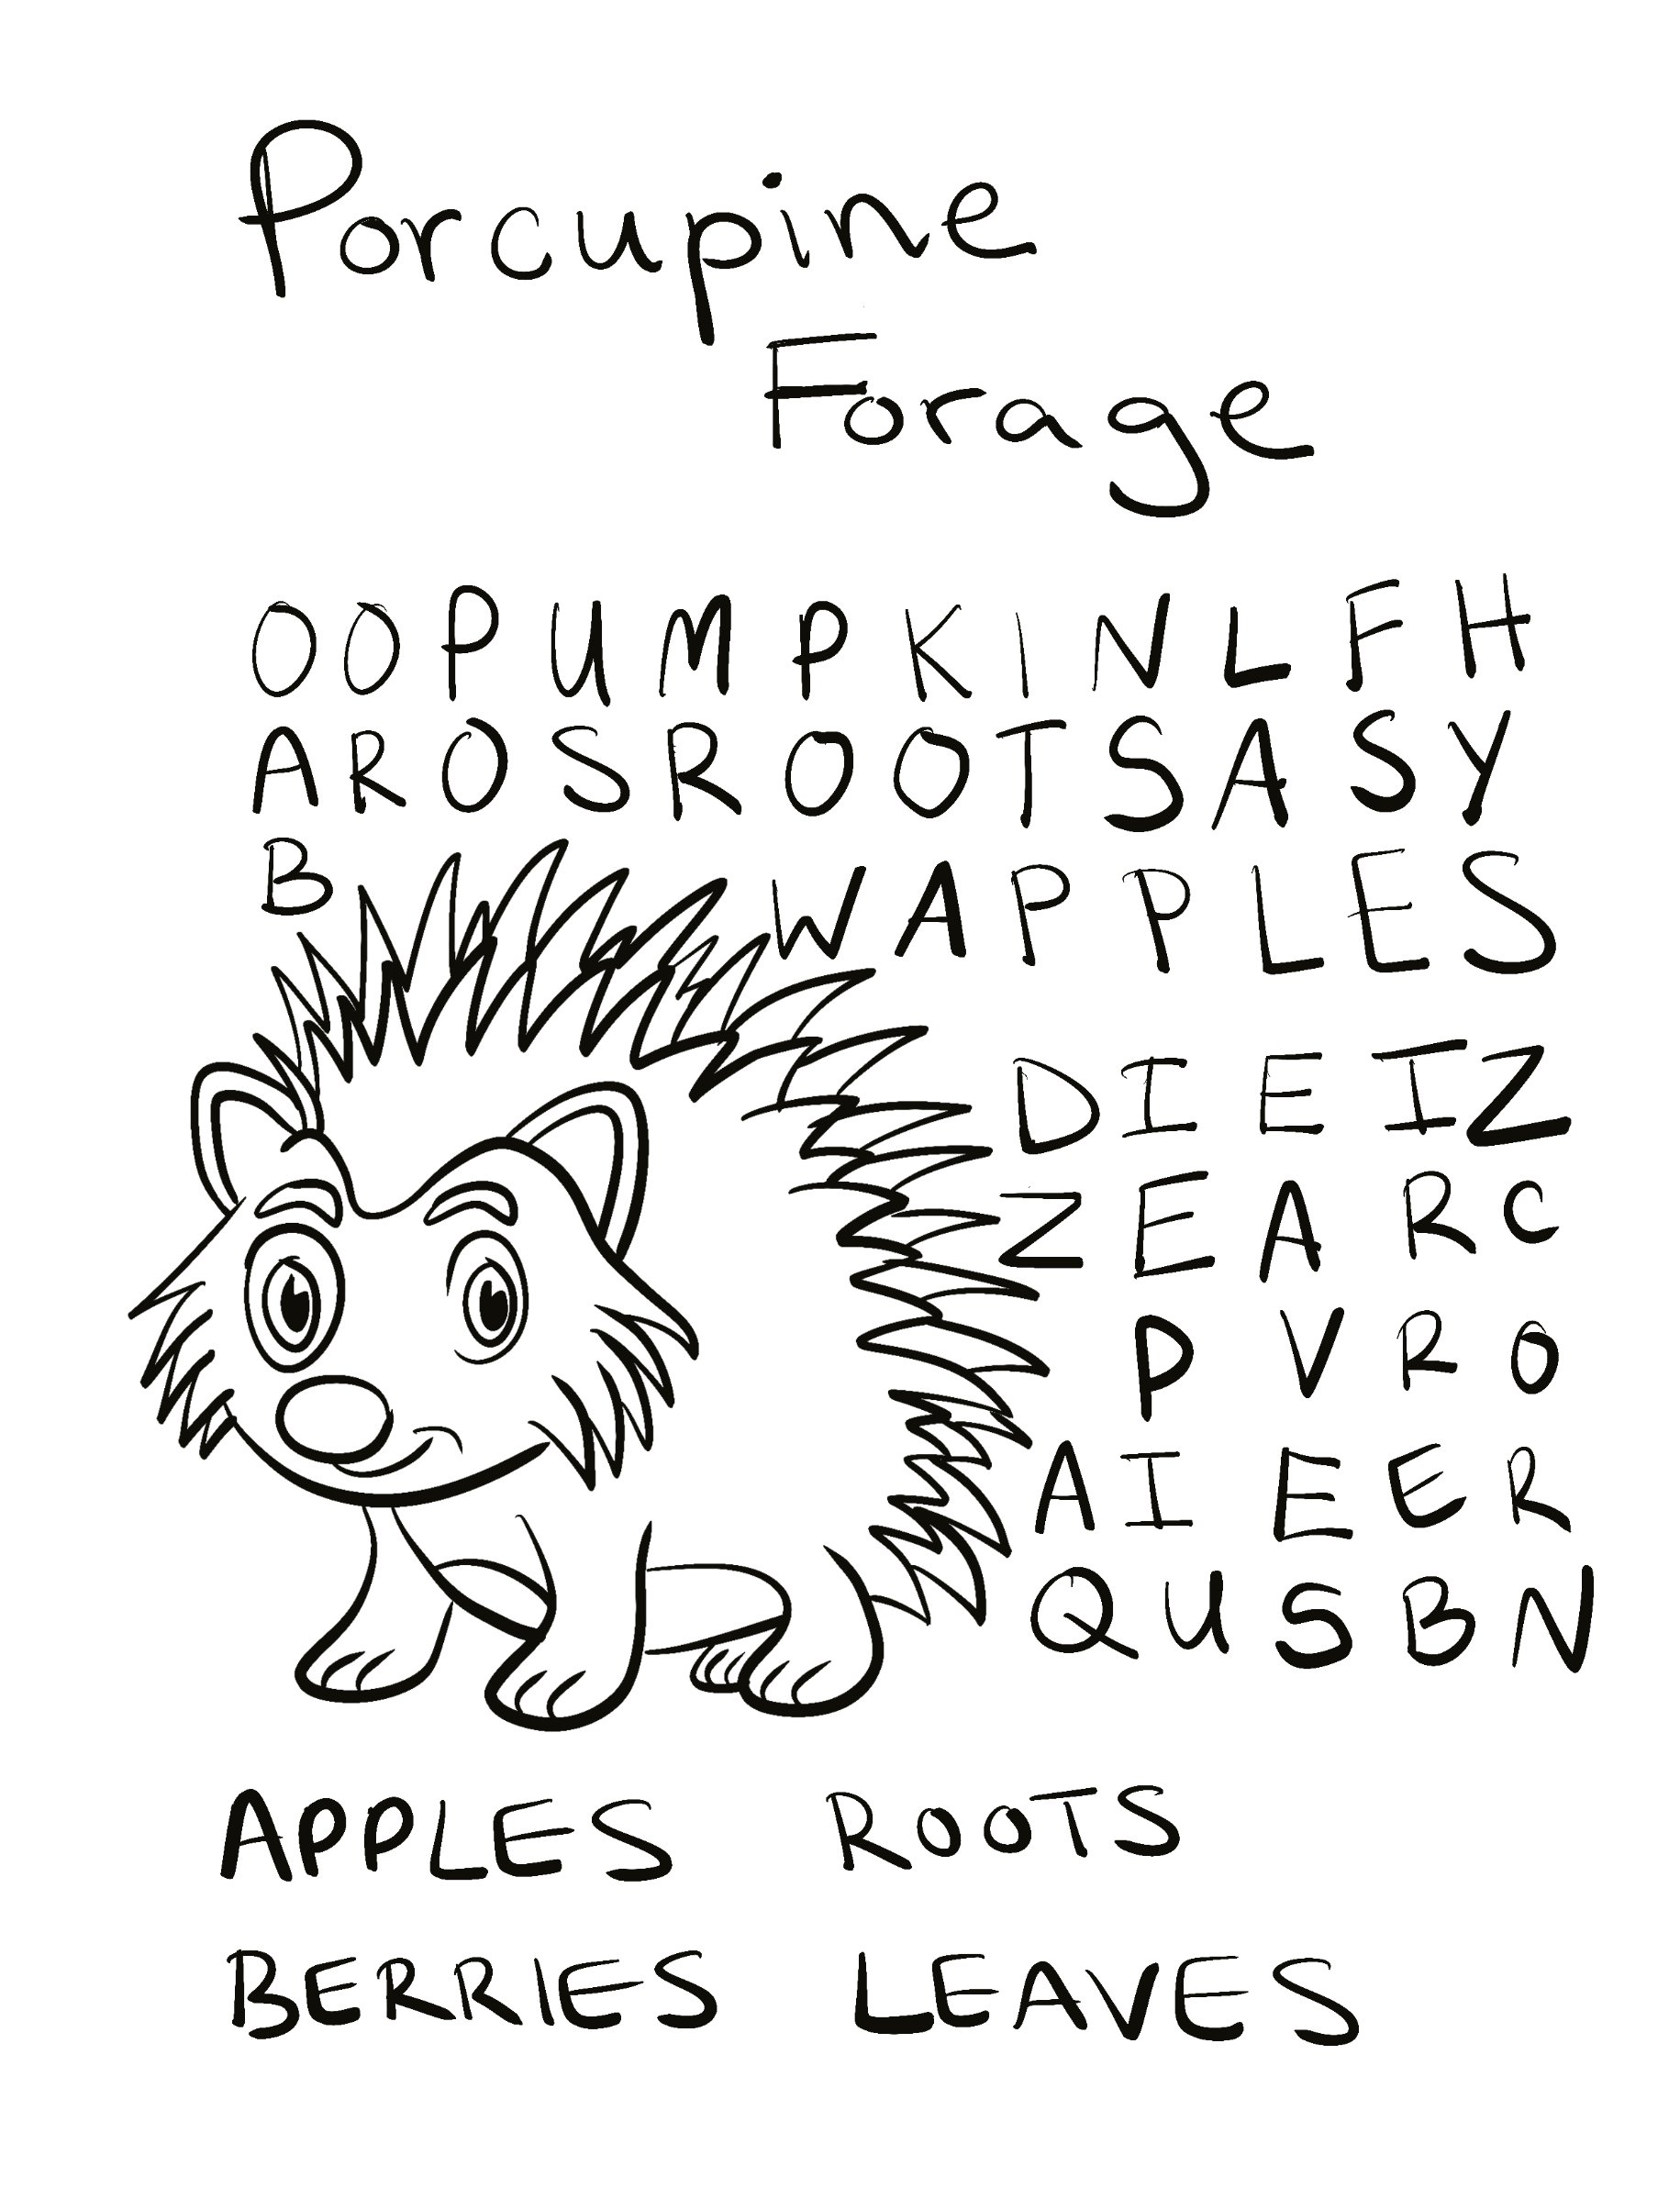 Porcupine
Forage
OOPUMPKINLFH
AROSROOTSASY
B WAPPLES
DIEIZ
ZEARC
PVRO
AIEER
QUSBN
APPLES ROOTS
BERRIES LEAVES